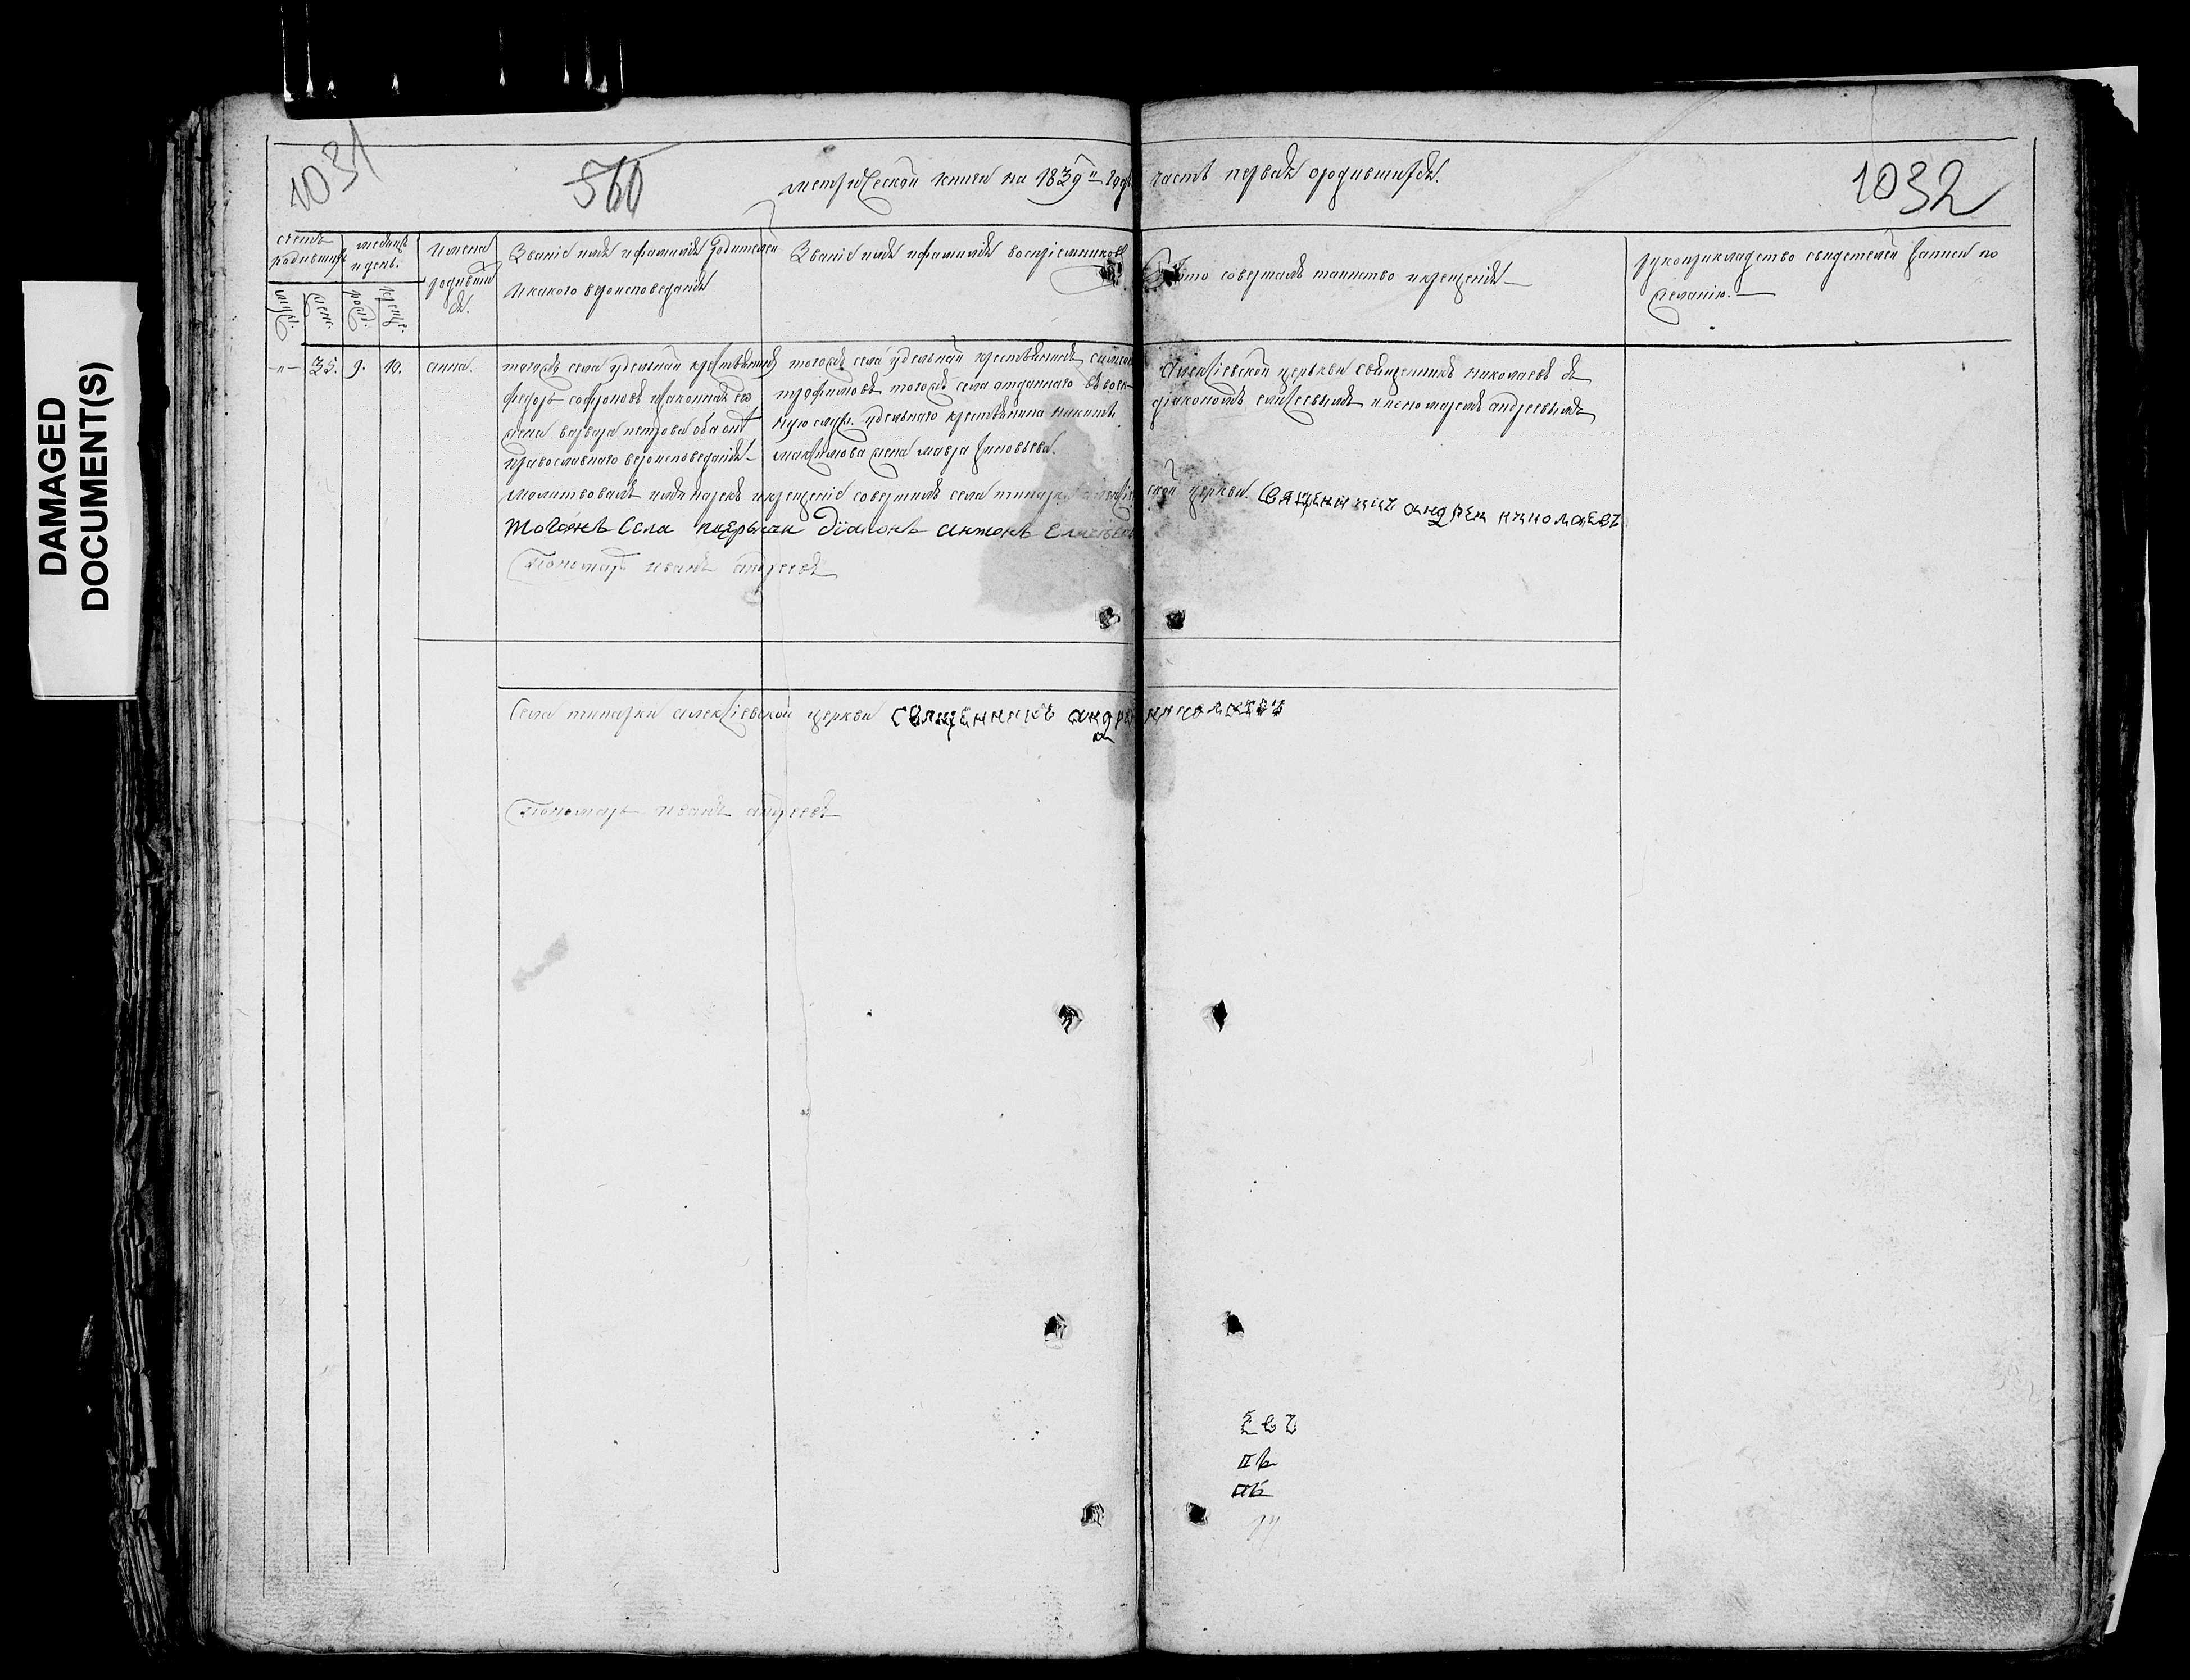 DAMAGED
DOCUMENT(S)
1031
560
метрической книги на 1839й годъ часть первая ородившихся.
1032
счетъ родившихся
месяцъ и день.
имена родившихся.
Званіе имя ифамилія родителей
икакого вероисповеданія
Званіе имя ифамилія воспріемниковъ
Кто совершалъ таинство икрещенія
рукоприкладство свидетелей записи по
желанію.
муж.
жен.
рожд.
креще.
-"- 35. 9. 10. анна.
тогожъ села удельный крестьянинъ
федоръ софроновъ изаконная его
жена варвара петрова оба онѣ
православнаго вероисповеданія
тогожъ села удельный крестьянинъ
трофимовъ тогожъ села отданнаго въ воен-
ную служ. удельнаго крестьянина никиты
максимова жена мавра зиновьева.
Алексіевской церькви священникъ николаевъ съ
діакономъ елисеевымъ ипономаремъ андреевымъ
молитвовалъ имя нарекъ икрещеніе совершилъ села алексіевской церкви. Священникъ андреи николаевъ
тогожъ Села діаконъ антонъ Елисеевъ
Пономарь иванъ андреевъ
Села алексіевской церкви священникъ андреи николаевъ
Пономарь иванъ андреевъ